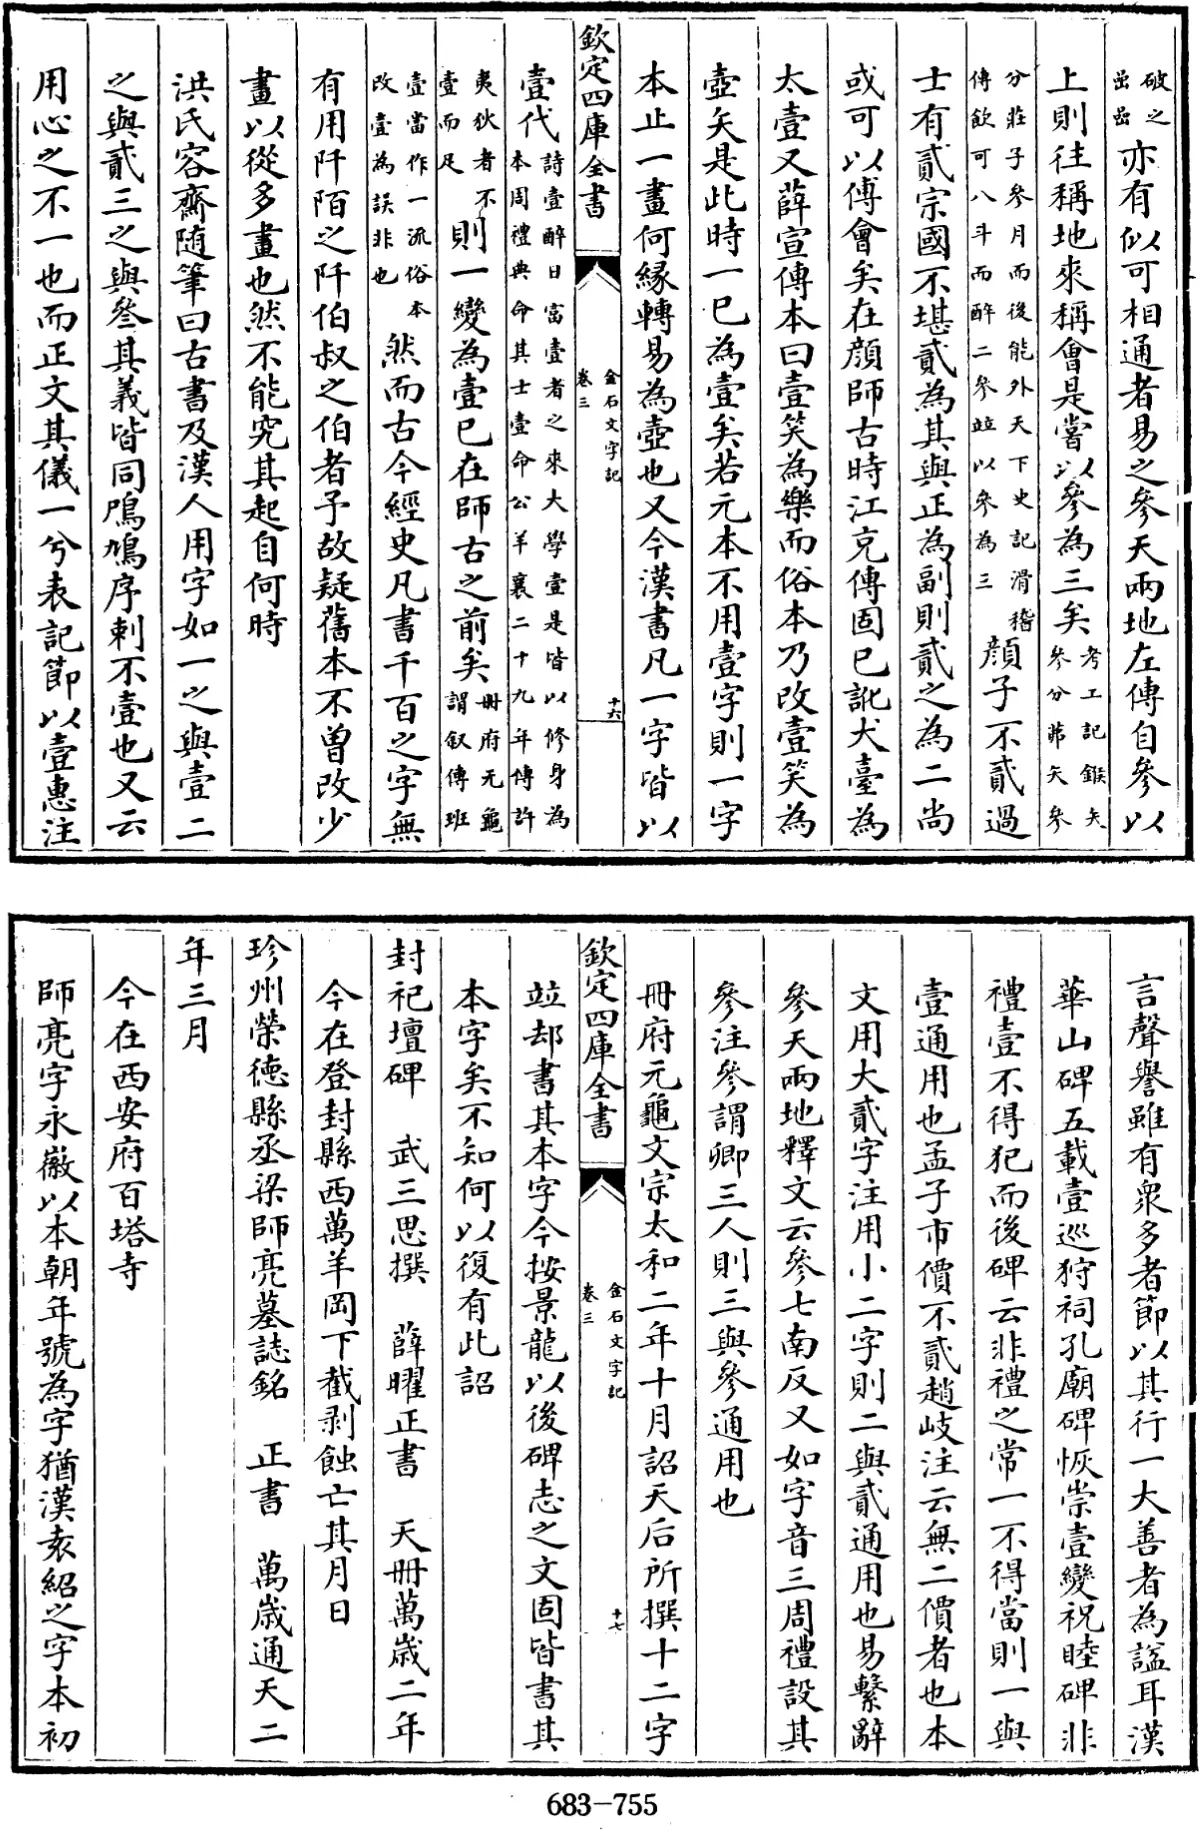 破之㗊㗊亦有似可相通者易之參天兩地左傳自參以
上則往稱地來稱會是嘗以參為三矣考工記鍭矢參分茀矢參
分莊子參月而後能外天下史記滑稽傳飲可八斗而醉二參竝以參為三顏子不貳過
士有貳宗國不堪貳為其與正為副則貳之為二尚
或可以傅會矣在顏師古時江充傳固已訛犬臺為
太壹又薛宣傳本曰壹笑為樂而俗本乃改壹笑為
壺矢是此時一已為壹矣若元本不用壹字則一字
本止一畫何緣轉易為壺也又今漢書凡一字皆以
欽定四庫全書
金石文字記
卷三
十六
壹代詩壹醉日富壹者之來大學壹是皆以修身為本周禮典命其士壹命公羊襄二十九年傳許
夷狄者不壹而足則一變為壹已在師古之前矣冊府元龜謂叙傳班
壹當作一流俗本改壹為誤非也然而古今經史凡書千百之字無
有用阡陌之阡伯叔之伯者予故疑舊本不曾改少
畫以從多畫也然不能究其起自何時
洪氏容齋隨筆曰古書及漢人用字如一之與壹二
之與貳三之與叄其義皆同鳲鳩序刺不壹也又云
用心之不一也而正文其儀一兮表記節以壹惠注
言聲譽雖有衆多者節以其行一大善者為謚耳漢
華山碑五載壹巡狩祠孔廟碑恢崇壹變祝睦碑非
禮壹不得犯而後碑云非禮之常一不得當則一與
壹通用也孟子市價不貳趙岐注云無二價者也本
文用大貳字注用小二字則二與貳通用也易繫辭
參天兩地釋文云參七南反又如字音三周禮設其
參注參謂卿三人則三與參通用也
冊府元龜文宗太和二年十月詔天后所撰十二字
欽定四庫全書
金石文字記
卷三
十七
竝却書其本字今按景龍以後碑志之文固皆書其
本字矣不知何以復有此詔
封祀壇碑 武三思撰 薛曜正書 天冊萬歲二年
今在登封縣西萬羊岡下截剥蝕亡其月日
珍州榮德縣丞梁師亮墓誌銘 正書 萬歲通天二
年三月
今在西安府百塔寺
師亮字永徽以本朝年號為字猶漢袁紹之字本初
683-755